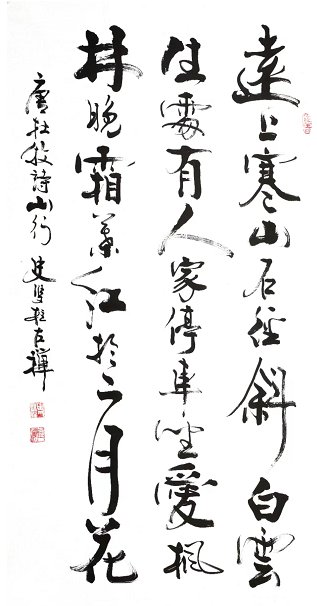 遠上寒山石徑斜白雲
生處有人家停車坐愛楓
林晚霜葉紅於二月花
唐杜牧詩山行